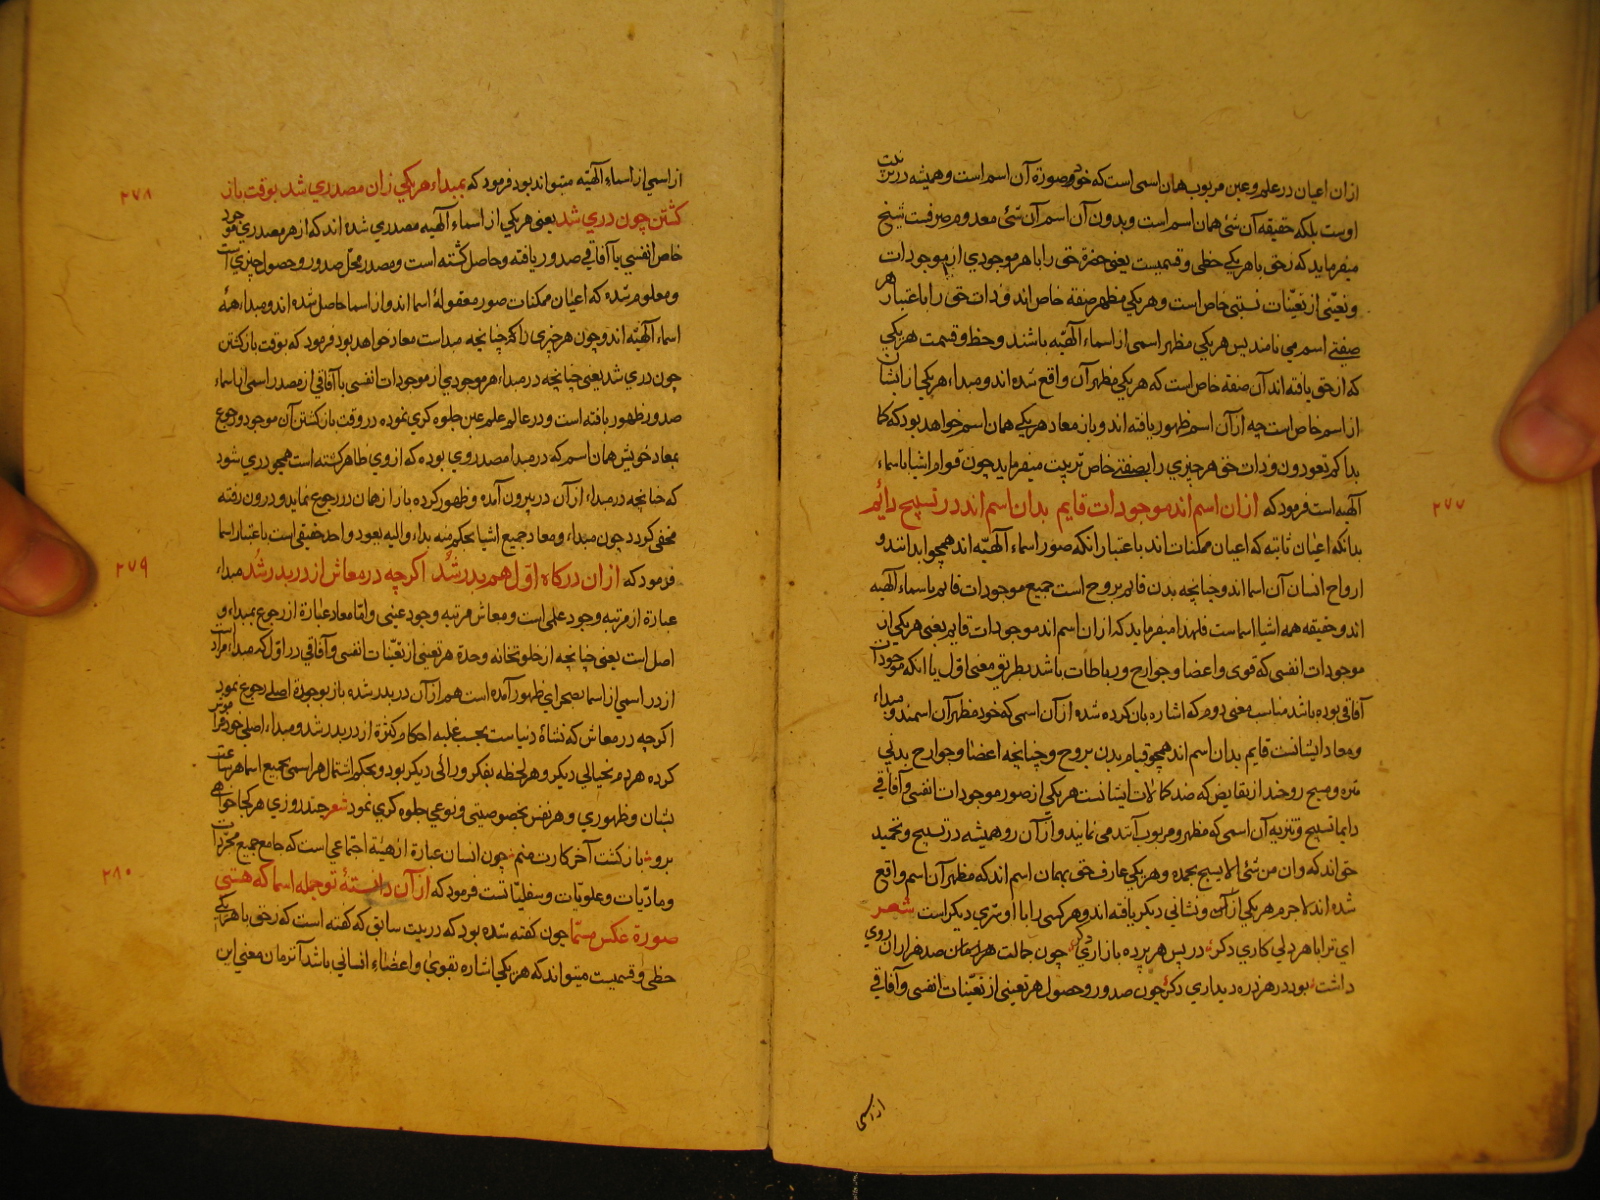 ازان اعیان در علم و عین مربوب همان اسمی است که خود صورة آن اسم است و همیشه در تربیت
اوست بلکه حقیقه آن شئ همان اسم است و بدون آن اسم آن شئ معدوم صرفست شیخ
میفرماید که زحق با هر یکی حظی و قسمیست یعنی حضرة حق را با هر موجودي از موجودات
و تعیّنی از تعیّنات نسبتی خاص است و هر یکي مظهر صفة خاص اند و ذات حق را باعتبار هر
صفتی اسم می نامند پس هر یکي مظهر اسمی از اسماء الهیّه باشند و حظ و قسمت هر یکي
که از حق یافته اند آن صفة خاص است که هر یکي مظهر آن واقع شده اند و مبداء هر یکي از ایشان
از اسم خاص است چه از آن اسم ظهور یافته اند و باز معاد هر یکی همان اسم خواهد بود که کما
بداکم تعودون و ذات حق هر چیزي را بصفتی خاص تربیت میفرماید چون قوام اشیا باسماء
الهیه است فرمود که ازان اسم اند موجودات قایم بدان اسم اند در تسبیح دائم
٢٧٧
بدانکه اعیان ثابته که اعیان ممکنات اند باعتبار انکه صور اسماء الهیّه اند همچو ابدانند و
ارواح انسان آن اسما اند و چنانچه بدن قائم بروح است جمیع موجودات قائم باسماء الهیه
اند و حقیقه همه اشیا اسماست فلهذا میفرماید که ازان اسم اند موجودات قایم یعنی هر یکي از
موجودات انفسی که قوی و اعضا و جوارح و رباطات باشد بطریق معنی اوّل یا انکه موجودات
آفاقی بوده باشد مناسب معنی دوم که اشاره بان کرده شده از آن اسمی که خود مظهر آن اسمند و مبداء
و معاد ایشانست قایم بدان اسم اند همچو قیام بدن بروح و چنانچه اعضا و جوارح بدنی
منزه و مسبح روحند از نقایض که ضد کمالات ایشانست هر یکي از صور موجودات انفسی و آفاقي
دایما تسبیح و تنزیه آن اسمی که مظهر و مربوب آنند می نمایند و از آن رو همیشه در تسبیح و تحمید
حق اند که وان من شئ الا یسبح بحمده و هر یکي عارف حق بهمان اسم اند که مظهر آن اسم واقع
شده اند لاجرم هر یکي از آن کس و نشانی دیگر یافته اند و هر کسی را با او سرّي دیگر است شعر
اي ترا با هر دلی کاري دگر در پس هر پرده بازاري دگر چون جمالت صد هزاران روي
داشت بود در هر ذره دیداري دگر چون صدور و حصول هر تعینی از تعیّنات انفسی و آفاقي
از اسمی
از اسمي از اسماء الهیّه میتواند بود فرمود که بمبداء هر یکي زان مصدري شد بوقت باز
٢٧٨
کشتن چون دري شد یعنی هر یکي از اسماء الهیه مصدري شده اند که از هر مصدري موجود
خاص انفسي یا آفاقي صدور یافته و حاصل کشته است و مصدر محلّ صدور و حصول چیزي است
و معلوم شده که اعیان ممکنات صور معقولهٔ اسما اند و از اسما حاصل شده اند و مبداء همهٔ
اسماء الهیّه اند و چون هر چیزي را که چنانچه مبداست معاد خواهد بود فرمود که بوقت باز کشتن
چون دري شد یعنی چنانچه در مبداء هر موجودي از موجودات انفسي یا آفاقي از مصدر اسمی از اسماء
صدور ظهور یافته است و در عالم علم عین جلوه کري نموده در وقت باز کشتن آن موجود و رجوع
بمعاد خویش همان اسم که در مبدا مصدر وي بوده که از وي ظاهر کشته است همچو دري شود
که چنانچه در مبداء از آن در بیرون آمده و ظهور کرده باز از همان در رجوع نماید و درون رفته
مخفی کردد چون مبداء و معاد جمیع اشیا بحکم منه بداء و الیه یعود واحد حقیقی است باعتبار اسما
فرمود که ازان در کاه اوّل هم بدر شد اکرچه در معاش از در بدر شد مبداء
٢٧٩
عبارة از مرتبه وجود علمی است و معاش مرتبه وجود عینی و امّا معاد عبارة از رجوع بمبداء و
اصل است یعنی چنانچه از خلوتخانه وحدة هر تعینی از تعیّنات انفسی و آفاقي در اوّل که مبداء مراد است
از در اسمي از اسما بصحراي ظهور آمده است هم از آن در بدر شده باز بوحدة اصلی رجوع نمود
اکرچه در معاش که نشاهٔ دنیاست بحسب غلبه احکام کثرة از در بدر شد و مبداء اصلي خود فراموش
کرده هر دم بخیالي دیکر و هر لحظه بفکر و رائی دیکر بود و بحکم اشتمال هر اسمی بجمیع اسما هر ساعت
بشان و ظهوري و هر نفس بخصوصیتی و نوعي جلوه کري نمود شعر چند روزي هر کجا خواهی
برو باز کشت آخر کارت منم چون انسان عبارة از هیئة اجتماعي است که جامع جمیع مجردات
و مادّیات و علویّات و سفلیّاتست فرمود که از آن دانستهٔ تو جمله اسما که هستي
٢٨٠
صورة عکس مسمّا چون کفته شده بود که در بیت سابق که کفته است که زحق با هر یکي
حظی و قسمیت میتواند که هر یکي اشاره بقوي و اعضاء انسانی باشد آنزمان معني این